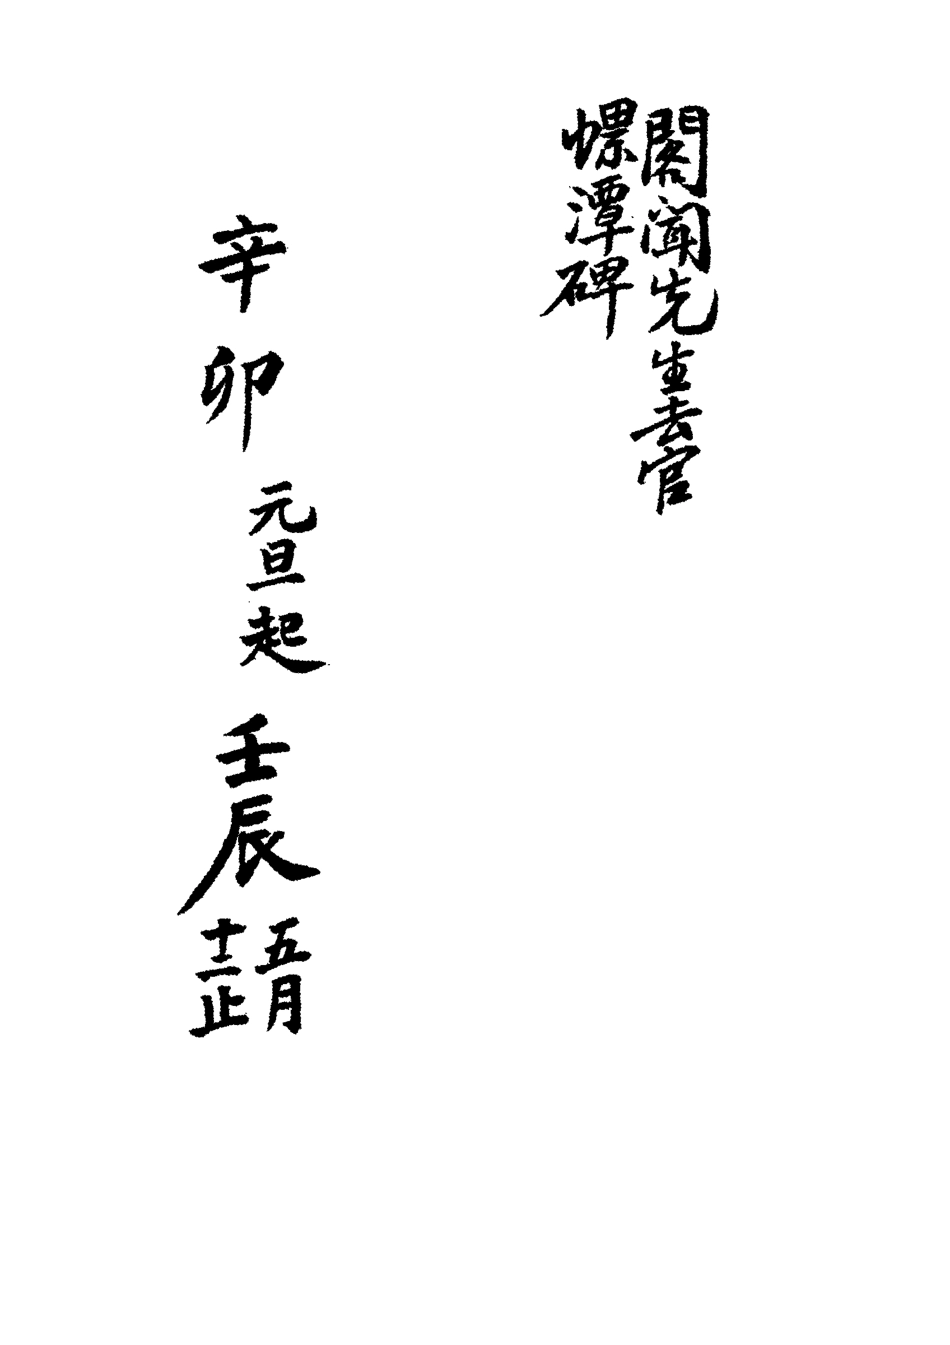 閣聞先生去官
螺潭碑
辛卯元旦起壬辰五月
十二止